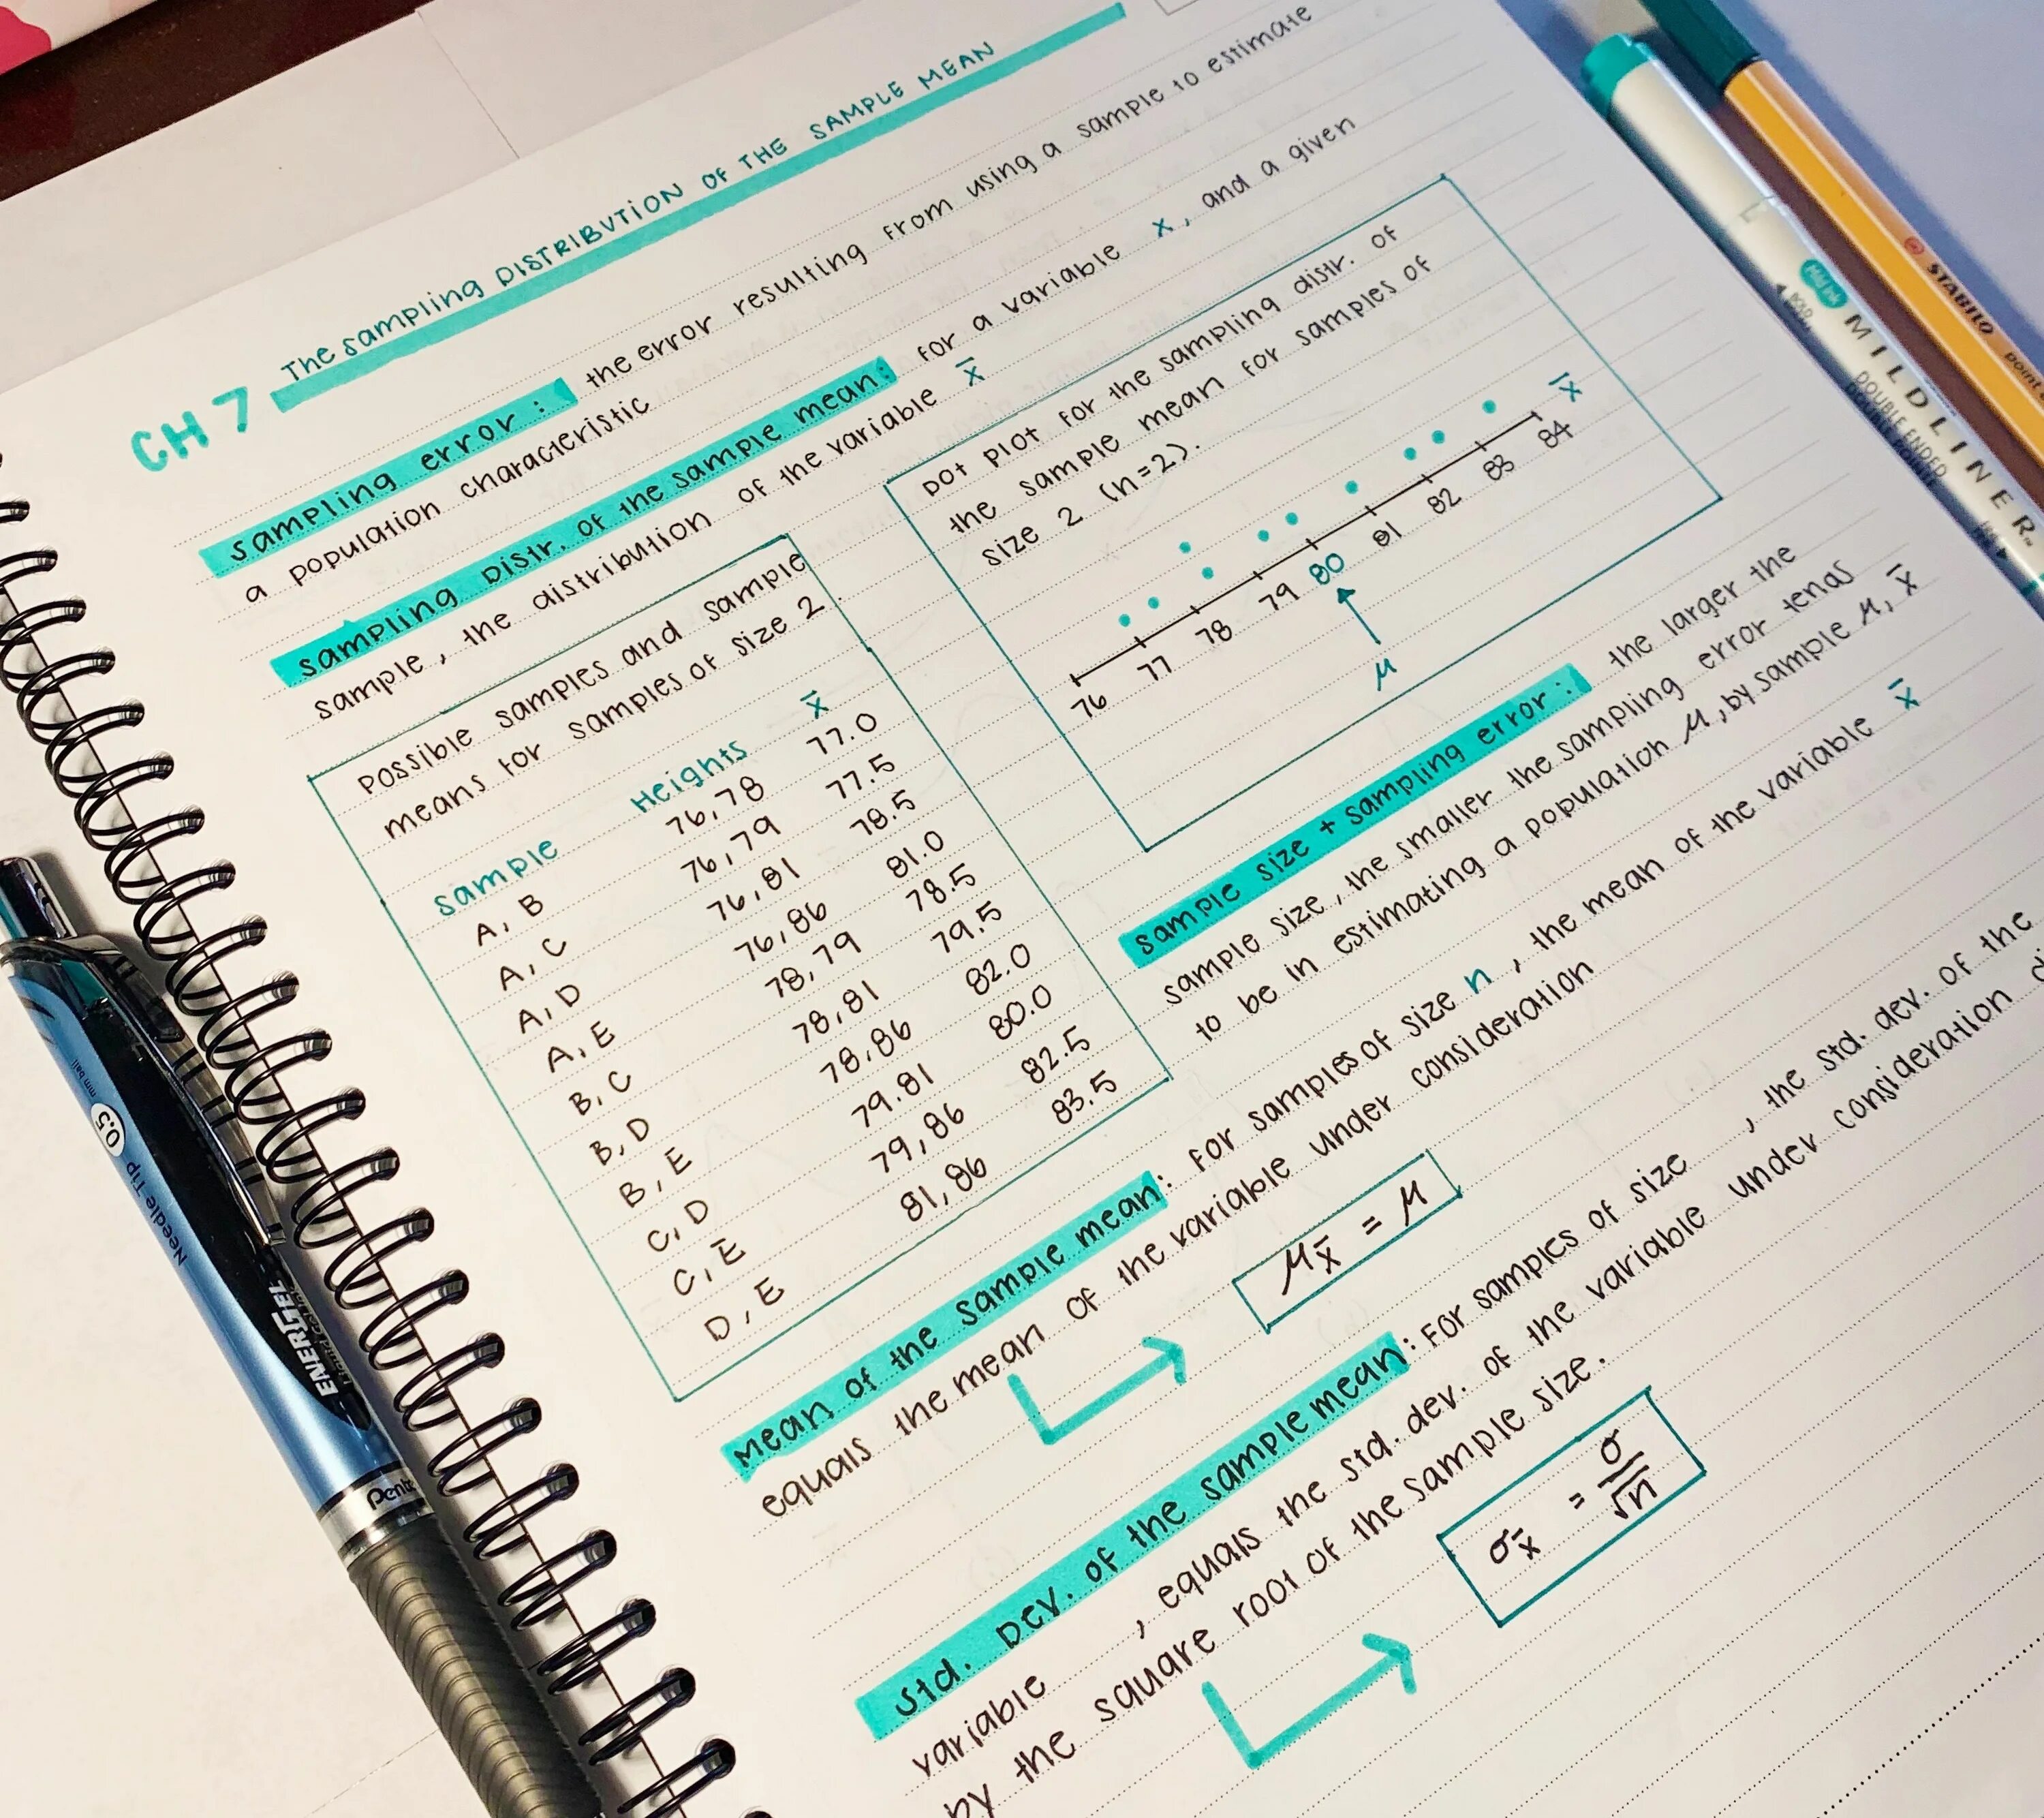 CH 7 The sampling DISTRIBUTION OF THE SAMPLE MEAN
sampling error: the error resulting from using a sample to estimate
a population characteristic
sampling Distr. of the sample mean: for a variable x, and a given
sample, the distribution of the variable x̄
possible samples and sample
means for samples of size 2.
sample Heights x̄
A, B 76,78 77.0
A, C 76,79 77.5
A, D 76,81 78.5
A, E 76,86 81.0
B, C 78,79 78.5
B, D 78,81 79.5
B, E 78,86 82.0
C, D 79.81 80.0
C, E 79,86 82.5
D, E 81,86 83.5
Dot plot for the sampling distr. of
the sample mean for samples of
size 2 (n=2).
x̄
76 77 78 79 80 81 82 83 84
μ
sample size + sampling error: the larger the
sample size, the smaller the sampling error tends
to be in estimating a population μ, by sample μ, x̄
mean of the sample mean: For samples of size n, the mean of the variable x̄
equals the mean of the variable under consideration
μx̄ = μ
std. Dev. of the sample mean: For samples of size , the std. dev. of the
variable , equals the std. dev. of the variable under consideration
by the square root of the sample size.
σx̄ = σ/√n
Needle Tip 0.5 mm ball
ENERGEL
Pente
MILDLINER
DOUBLE ENDED
STABILO point